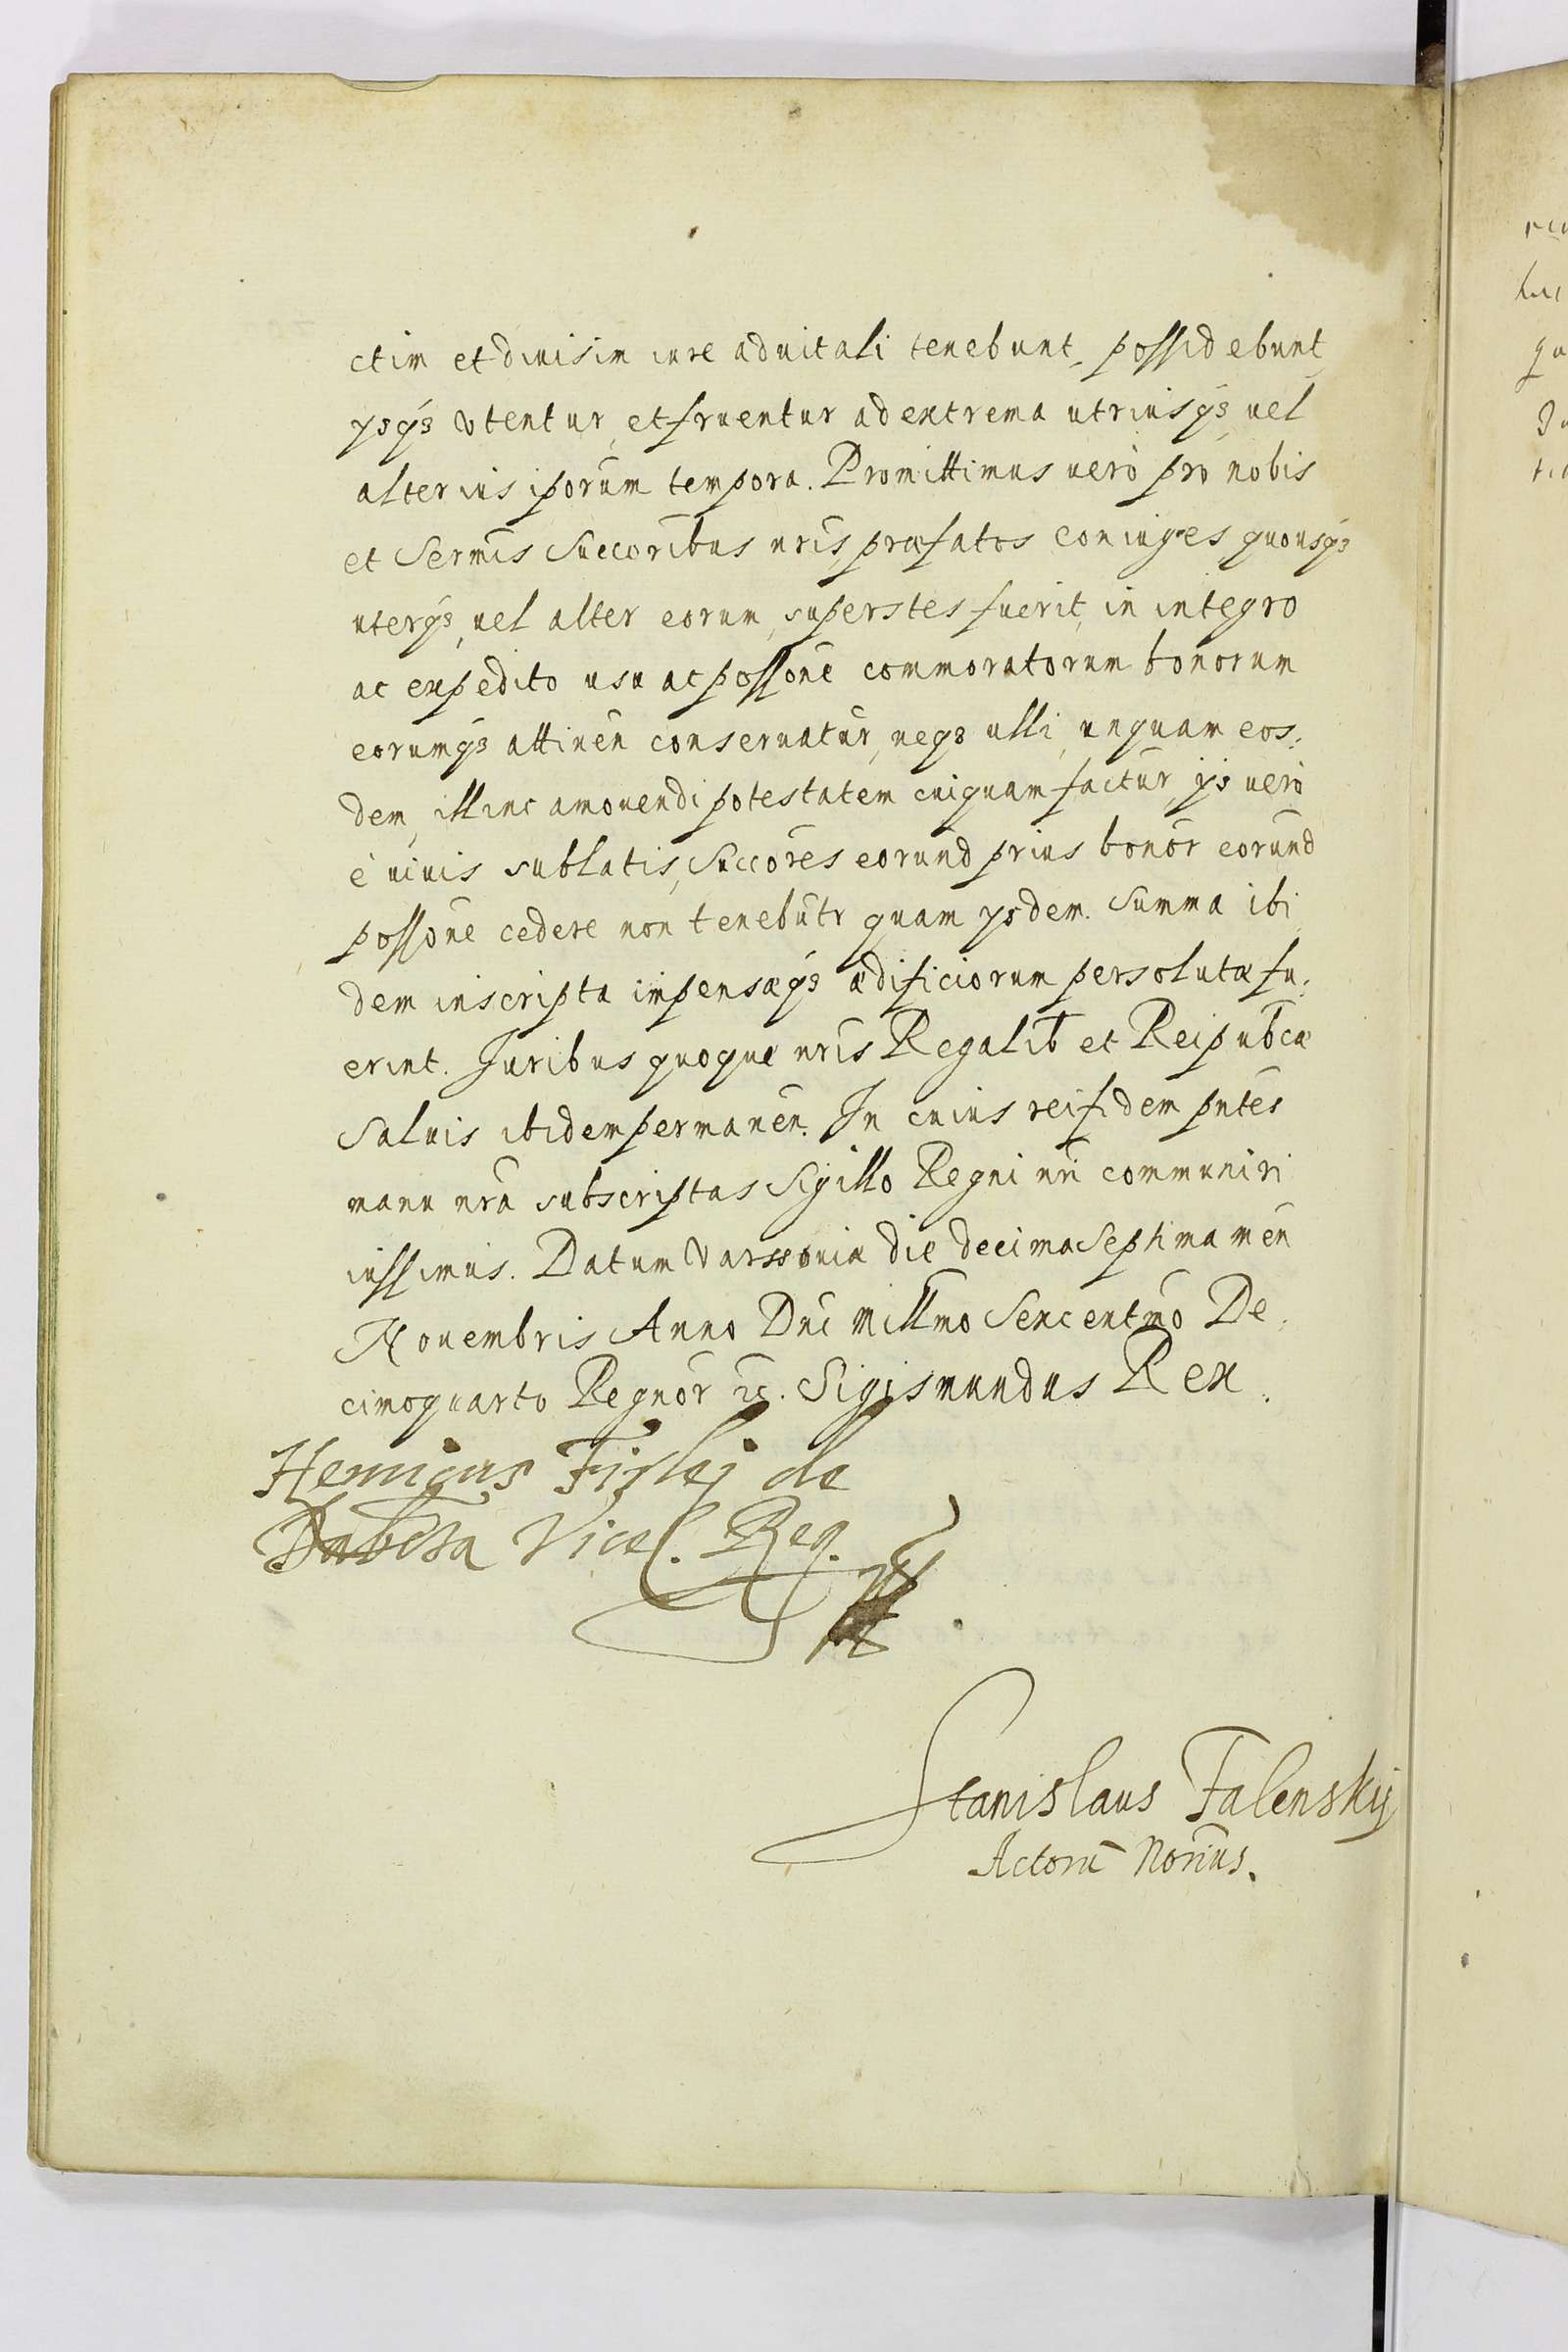 ctim et diuisim iure aduitali tenebunt, possidebunt,
ysqꝫ vtentur, et fruentur ad extrema utriusqꝫ uel
alterius iporum tempora. Promittimus uerò pro nobis
et Sermis Succoribus nris, præfatos coniuges quousqꝫ
uterqꝫ, uel alter eorum, superstes fuerit, in integro
ac expedito usu ac possone commoratorum bonorum
eorumqꝫ attinen conseruatur, neqꝫ ulli, unquam eos:
dem, illinc amouendi potestatem cuiquam factur, ÿs uerò
è uiuis sublatis, Succores eorund prius bonor eorund
possone cedere non tenebutr quam ysdem. Summa ibi
dem inscripta impensæqꝫ ædificiorum persolutæ fu:
erint. Juribus quoque nris Regalib et Reipubcæ
Saluis ibidem permanen. In cuius rei fidem pntes
manu nra subscriptas Sigillo Regni nri communiri
iussimus. Datum Varssouiæ die decima Septima men
Nouembris Anno Dni Millmo Sexcentmo De:
cimoquarto Regnor ꝛc. Sigismundus Rex.
Henricus Firlej de
Dabrowica Vicel. Reg.
Stanislaus Falenskij
Actorū Norius.